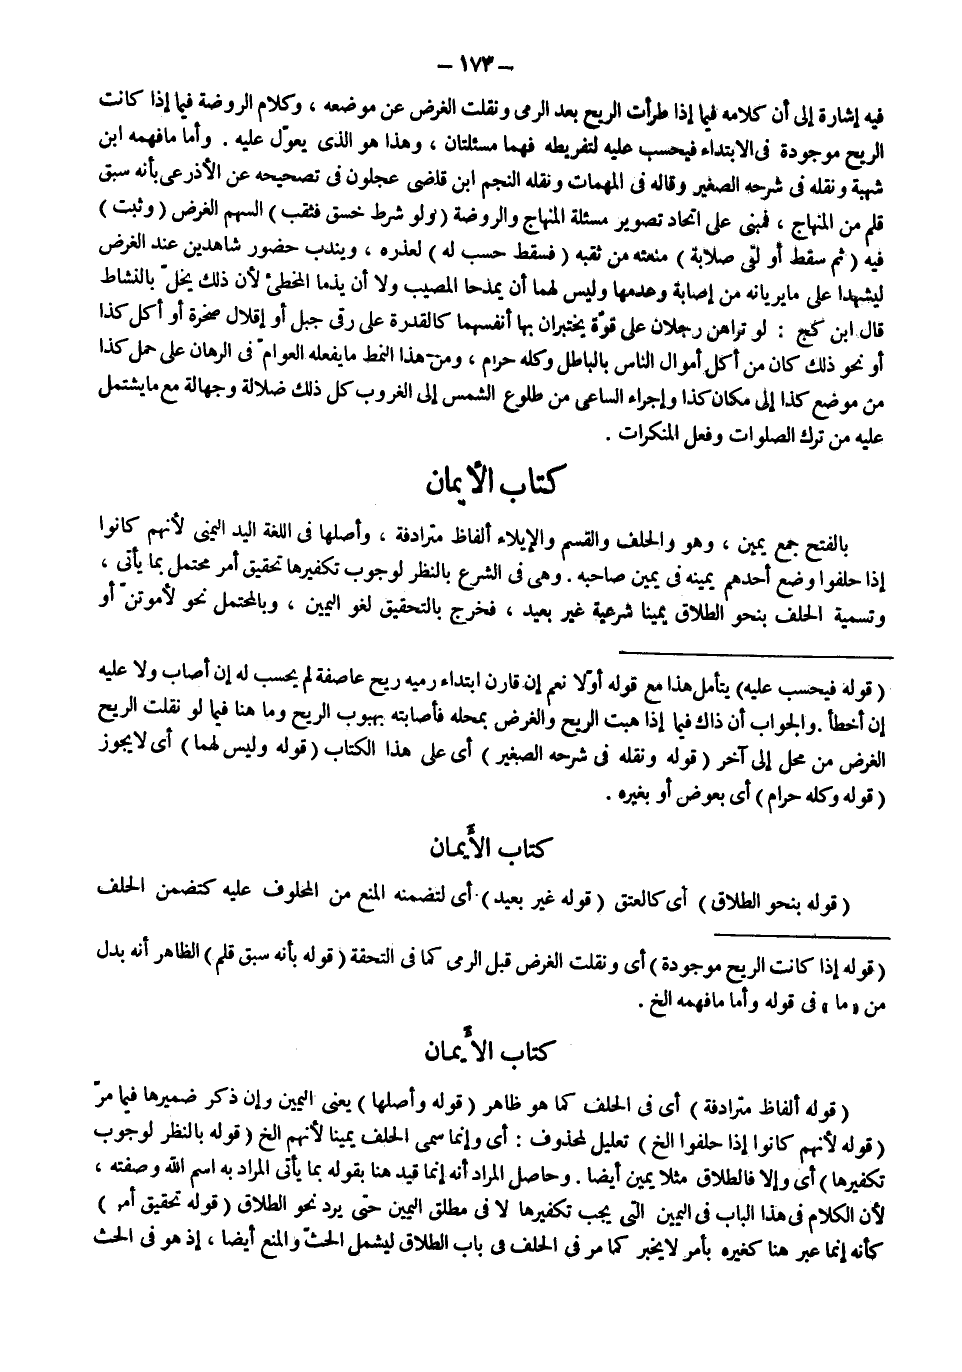 – ١٧٣ –
فيه إشارة إلى أن كلامه فيما إذا طرأت الريح بعد الرمى ونقلت الغرض عن موضعه ، وكلام الروضة فيما إذا كانت
الريح موجودة فى الابتداء فيحسب عليه لتفريطه فهما مسئلتان ، وهذا هو الذى يعوّل عليه . وأما مافهمه ابن
شهبة ونقله فى شرحه الصغير وقاله فى المهمات ونقله النجم ابن قاضى عجلون فى تصحيحه عن الأذرعى بأنه سبق
قلم من المنهاج ، فمبنى على اتحاد تصوير مسئلة المنهاج والروضة ( ولو شرط خسق فثقب ) السهم الغرض ( وثبت )
فيه ( ثم سقط أو لقى صلابة ) منعته من ثقبه ( فسقط حسب له ) لعذره ، ويندب حضور شاهدين عند الغرض
ليشهدا على مايريانه من إصابة وعدمها وليس لهما أن يمدحا المصيب ولا أن يذما المخطئ لأن ذلك يخلّ بالنشاط
قال ابن كج : لو تراهن رجلان على قوّة يختبران بها أنفسهما كالقدرة على رقى جبل أو إقلال صخرة أو أكل كذا
أو نحو ذلك كان من أكل أموال الناس بالباطل وكله حرام ، ومن هذا النمط مايفعله العوامّ فى الرهان على حمل كذا
من موضع كذا إلى مكان كذا وإجراء الساعى من طلوع الشمس إلى الغروب كل ذلك ضلالة وجهالة مع مايشتمل
عليه من ترك الصلوات وفعل المنكرات .
كتاب الأيمان
بالفتح جمع يمين ، وهو والحلف والقسم والإيلاء ألفاظ مترادفة ، وأصلها فى اللغة اليد اليمنى لأنهم كانوا
إذا حلفوا وضع أحدهم يمينه فى يمين صاحبه . وهى فى الشرع بالنظر لوجوب تكفيرها تحقيق أمر محتمل بما يأتى ،
وتسمية الحلف بنحو الطلاق يمينا شرعية غير بعيد ، فخرج بالتحقيق لغو اليمين ، وبالمحتمل نحو لأموتنّ أو
( قوله فيحسب عليه) يتأمل هذا مع قوله أوّلا نعم إن قارن ابتداء رميه ريح عاصفة لم يحسب له إن أصاب ولا عليه
إن أخطأ . والجواب أن ذاك فيما إذا هبت الريح والغرض بمحله فأصابته بهبوب الريح وما هنا فيما لو نقلت الريح
الغرض من محل إلى آخر ( قوله ونقله فى شرحه الصغير ) أى على هذا الكتاب ( قوله وليس لهما ) أى لايجوز
( قوله وكله حرام ) أى بعوض أو بغيره .
كتاب الأَيمان
( قوله بنحو الطلاق ) أى كالعتق ( قوله غير بعيد ) أى لتضمنه المنع من المحلوف عليه كتضمن الحلف
( قوله إذا كانت الريح موجودة ) أى ونقلت الغرض قبل الرمى كما فى التحفة ( قوله بأنه سبق قلم ) الظاهر أنه بدل
من « ما » فى قوله وأما مافهمه الخ .
كتاب الأَيمان
( قوله ألفاظ مترادفة ) أى فى الحلف كما هو ظاهر ( قوله وأصلها ) يعنى اليمين وإن ذكر ضميرها فيما مرّ
( قوله لأنهم كانوا إذا حلفوا الخ ) تعليل لمحذوف : أى وإنما سمى الحلف يمينا لأنهم الخ ( قوله بالنظر لوجوب
تكفيرها ) أى وإلا فالطلاق مثلا يمين أيضا . وحاصل المراد أنه إنما قيد هنا بقوله بما يأتى المراد به اسم الله وصفته ،
لأن الكلام فى هذا الباب فى اليمين التى يجب تكفيرها لا فى مطلق اليمين حتى يرد نحو الطلاق ( قوله تحقيق أمر )
كأنه إنما عبر هنا كغيره بأمر لايخبر كما مر فى الحلف فى باب الطلاق ليشمل الحثّ والمنع أيضا ، إذ هو فى الحث